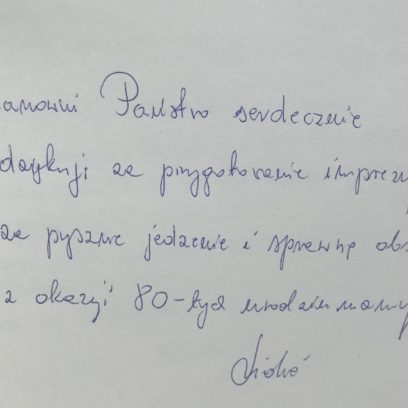 anowni Państwo serdecznie
dziękuję za przygotowanie imprez
za pyszne jedzenie i sprawną obs
z okazji 80-tych urodzin mamy